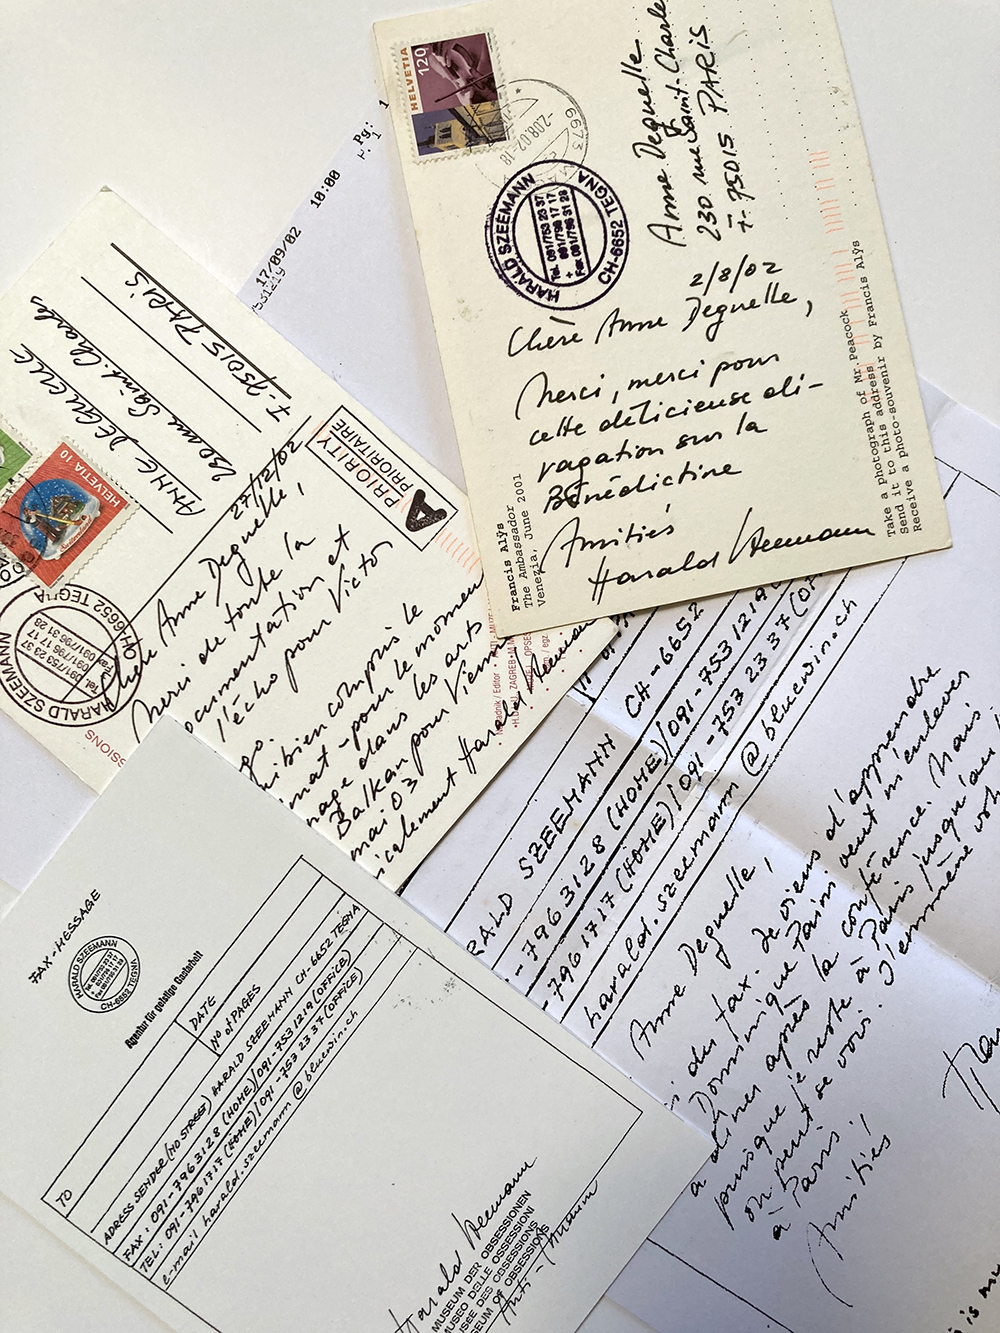 HELVETIA 120
-2.08.02-18
6673
HARALD SZEEMANN
CH-6652 TEGNA
Tel. 091/753 23 37
+ 091/796 17 17
Fax 091/796 31 28
Anne Deguelle
230 rue Saint-Charles
F-75015 PARIS
2/8/02
Chère Anne Deguelle,
Merci, merci pour
cette délicieuse di-
vagation sur la
Bénédictine
Amitiés
Harald Szeemann
Francis Alÿs
The Ambassador
Venezia, June 2001
Take a photograph of Mr. Peacock
Send it to this address
Receive a photo-souvenir by Francis Alÿs
17/09/02 10:00 Pg: 1
ANNE DEGUELLE
Saint. Charles
F-75015 PARIS
HELVETIA 10
A PRIORITY
PRIORITAIRE
HARALD SZEEMANN
CH-6652 TEGNA
Tel. 091/753 23 37
091/796 17 17
Fax 091/796 31 28
27/12/02
Chère Anne Deguelle,
Merci de toute la
documentation et
l'écho pour Victo
go.
bien compris le
mat - pour le momen
nage dans les
Balkan pour Vienn
mai 03
icalement Harald Szeemann
SSIONS
RALD SZEEMANN CH-6652
-7963128 (HOME)/091-7531219 (OF
-7961717 (HOME)/091-753 2337 (OF
harald.szeemann @ bluewin.ch
Anne Deguelle,
du fax. Je viens d'apprendre
Dominique Païni veut m'enlever
dîner après la conférence. Mais
puisque je reste à Paris jusqu'au
on peut se voir. J'emmène vot
à Paris!
Amitiés
FAX-MESSAGE
HARALD SZEEMANN
CH-6652 TEGNA
Tel. 091/753 23 37
+ 091/796 17 17
Fax 091/796 31 28
Agentur für geistige Gastarbeit
DATE
TO
No of PAGES
ADRESS SENDER (NO STREET) HARALD SZEEMANN CH-6652 TEGNA
FAX: 091-7963128 (HOME)/091-7531219 (OFFICE)
TEL: 091-7961717 (HOME)/091-753 2337 (OFFICE)
e-mail harald.szeemann @ bluewin.ch
Harald Szeemann
MUSEUM DER OBSESSIONEN
MUSEO DELLE OSSESSIONI
MUSEE DES OBSESSIONS
MUSEUM OF OBSESSIONS